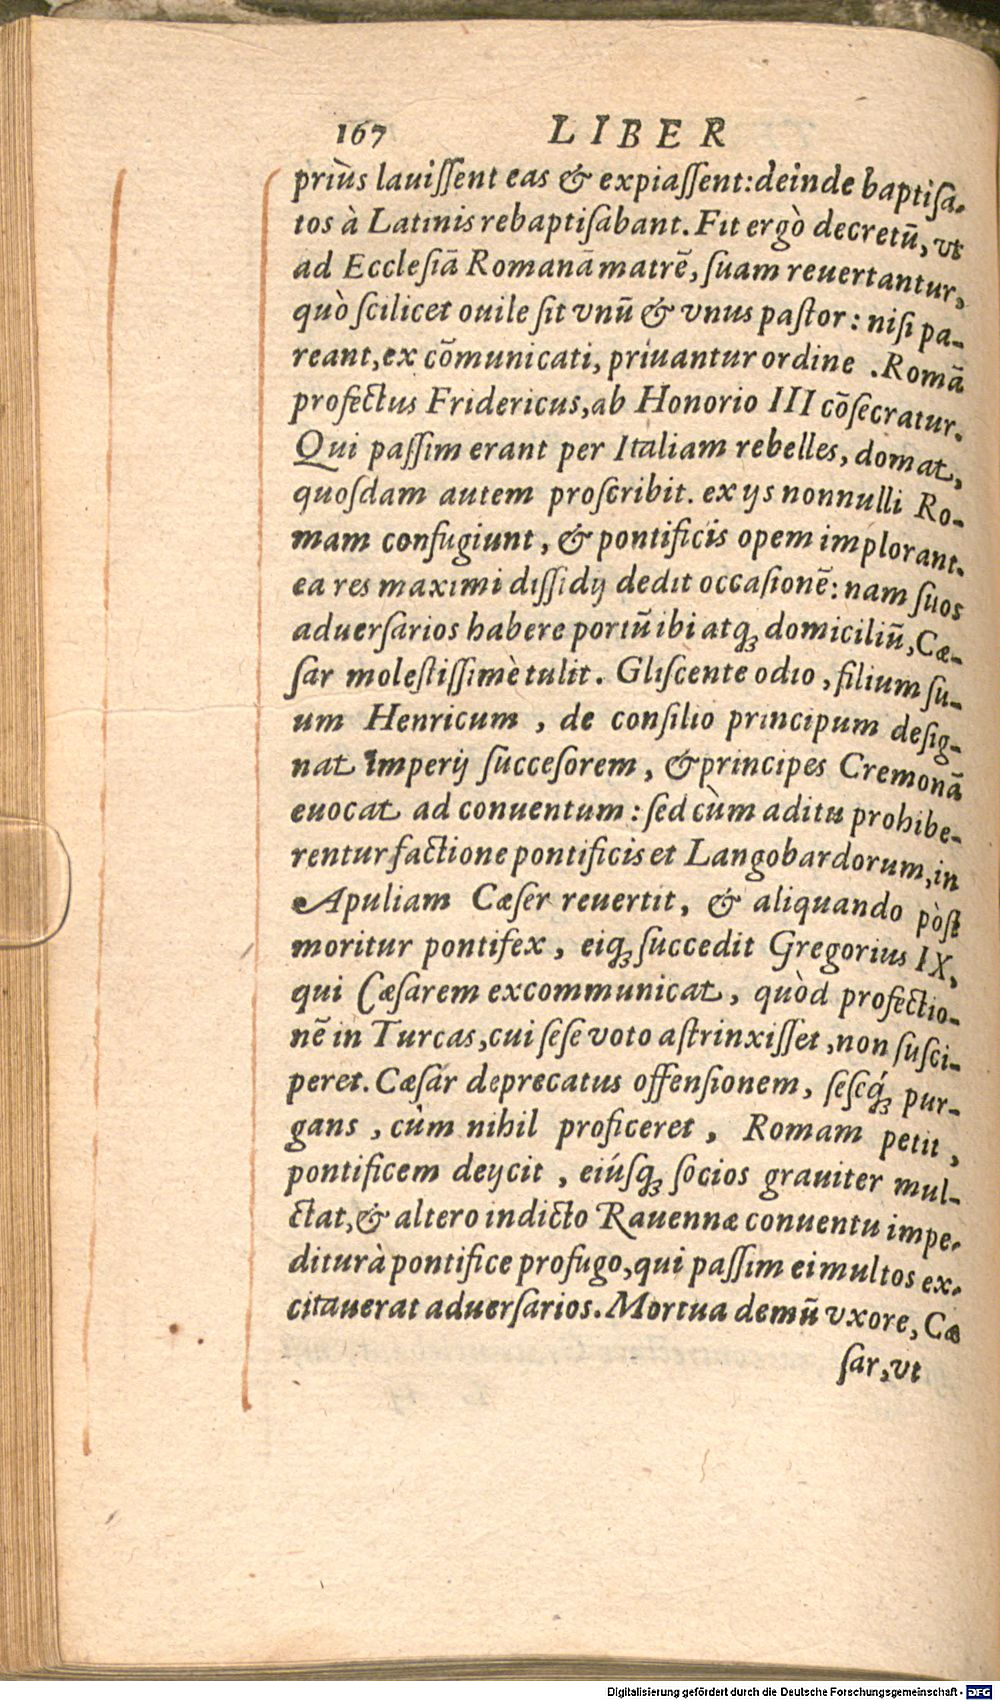 167 LIBER
priùs lauissent eas & expiassent: deinde baptisa-
tos à Latinis rebaptisabant. Fit ergò decretū, vt
ad Ecclesiā Romanā matrē, suam reuertantur,
quò scilicet ouile sit vnū & vnus pastor: nisi pa-
reant, ex cōmunicati, priuantur ordine. Romā
profectus Fridericus, ab Honorio III cōsecratur.
Qui passim erant per Italiam rebelles, domat,
quosdam autem proscribit. ex ijs nonnulli Ro-
mam confugiunt, & pontificis opem implorant.
ea res maximi dissidij dedit occasionē: nam suos
aduersarios habere portū ibi atq; domiciliū, Cæ-
sar molestissimè tulit. Gliscente odio, filium su-
um Henricum, de consilio principum desig-
nat Imperij succesorem, & principes Cremonā
euocat ad conuentum: sed cùm aditu prohibe-
rentur factione pontificis et Langobardorum, in
Apuliam Cæser reuertit, & aliquando pòst
moritur pontifex, eiq; succedit Gregorius IX,
qui Cæsarem excommunicat, quòd profectio-
nē in Turcas, cui sese voto astrinxisset, non susci-
peret. Cæsar deprecatus offensionem, seseq́; pur-
gans, cùm nihil proficeret, Romam petit,
pontificem deijcit, eiúsq; socios grauiter mul-
ctat, & altero indicto Rauennæ conuentu impe-
ditur à pontifice profugo, qui passim ei multos ex-
citauerat aduersarios. Mortua demū vxore, Cæ
sar, vt
Digitalisierung gefördert durch die Deutsche Forschungsgemeinschaft - DFG